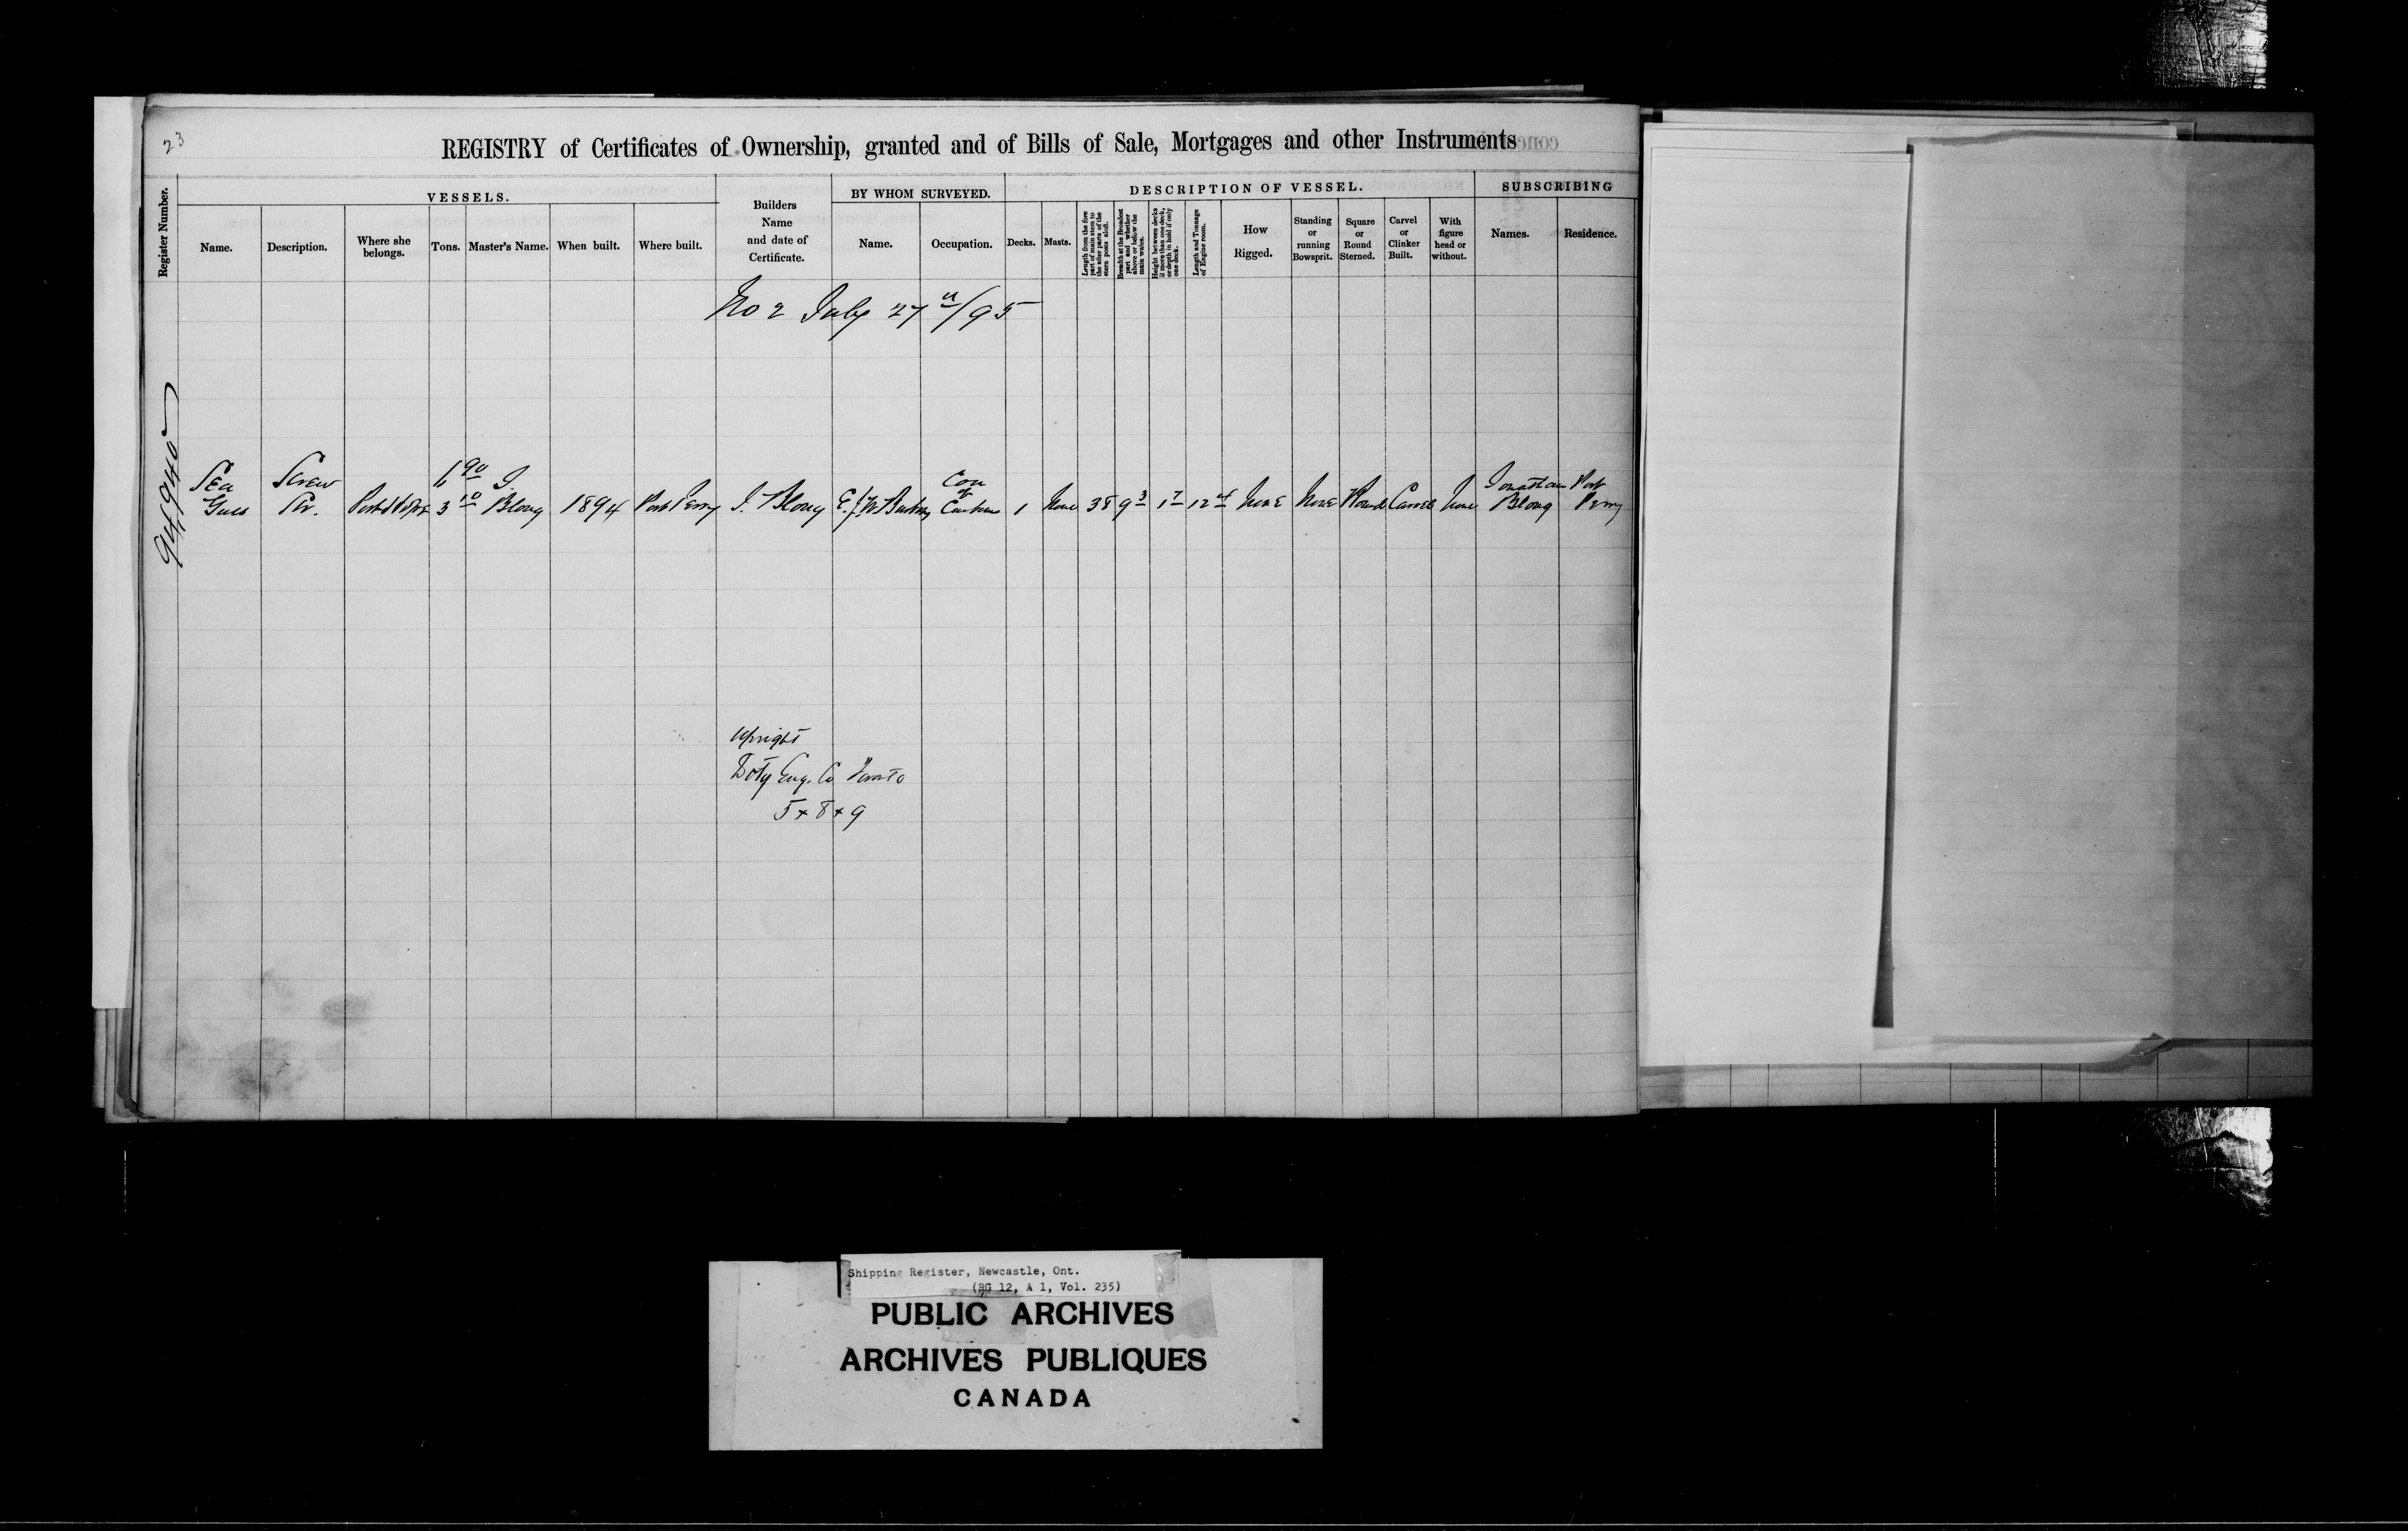 23
REGISTRY of Certificates of Ownership, granted and of Bills of Sale, Mortgages and other Instruments
Register Number.
VESSELS.
Name.
Description.
Where she belongs.
Tons.
Master's Name.
When built.
Where built.
Builders Name and date of Certificate.
BY WHOM SURVEYED.
Name.
Occupation.
DESCRIPTION OF VESSEL.
Decks.
Masts.
Length from the fore part of main stem to the after parts of the stern posts aloft.
Breadth at the Broadest part and whether above or below the main wales.
Height between decks if more than one deck, or depth in hold if only one deck.
Length and Tonnage of Engine room.
How Rigged.
Standing or running Bowsprit.
Square or Round Sterned.
Carvel or Clinker Built.
With figure head or without.
SUBSCRIBING
Names.
Residence.
No 2 July 27/95
94940
Sea Gull
Screw Str.
Port Hope
3 10
J. Blong
1894
Port Perry
J. Blong
Customs
1
None
38
9 3
1 7
12 4
None
None
Round
Carvel
None
Jonathan Blong
Port Perry
Upright
Doty Eng. Co Toronto
5 + 8 + 9
Shipping Register, Newcastle, Ont.
(RG 12, A 1, Vol. 235)
PUBLIC ARCHIVES
ARCHIVES PUBLIQUES
CANADA